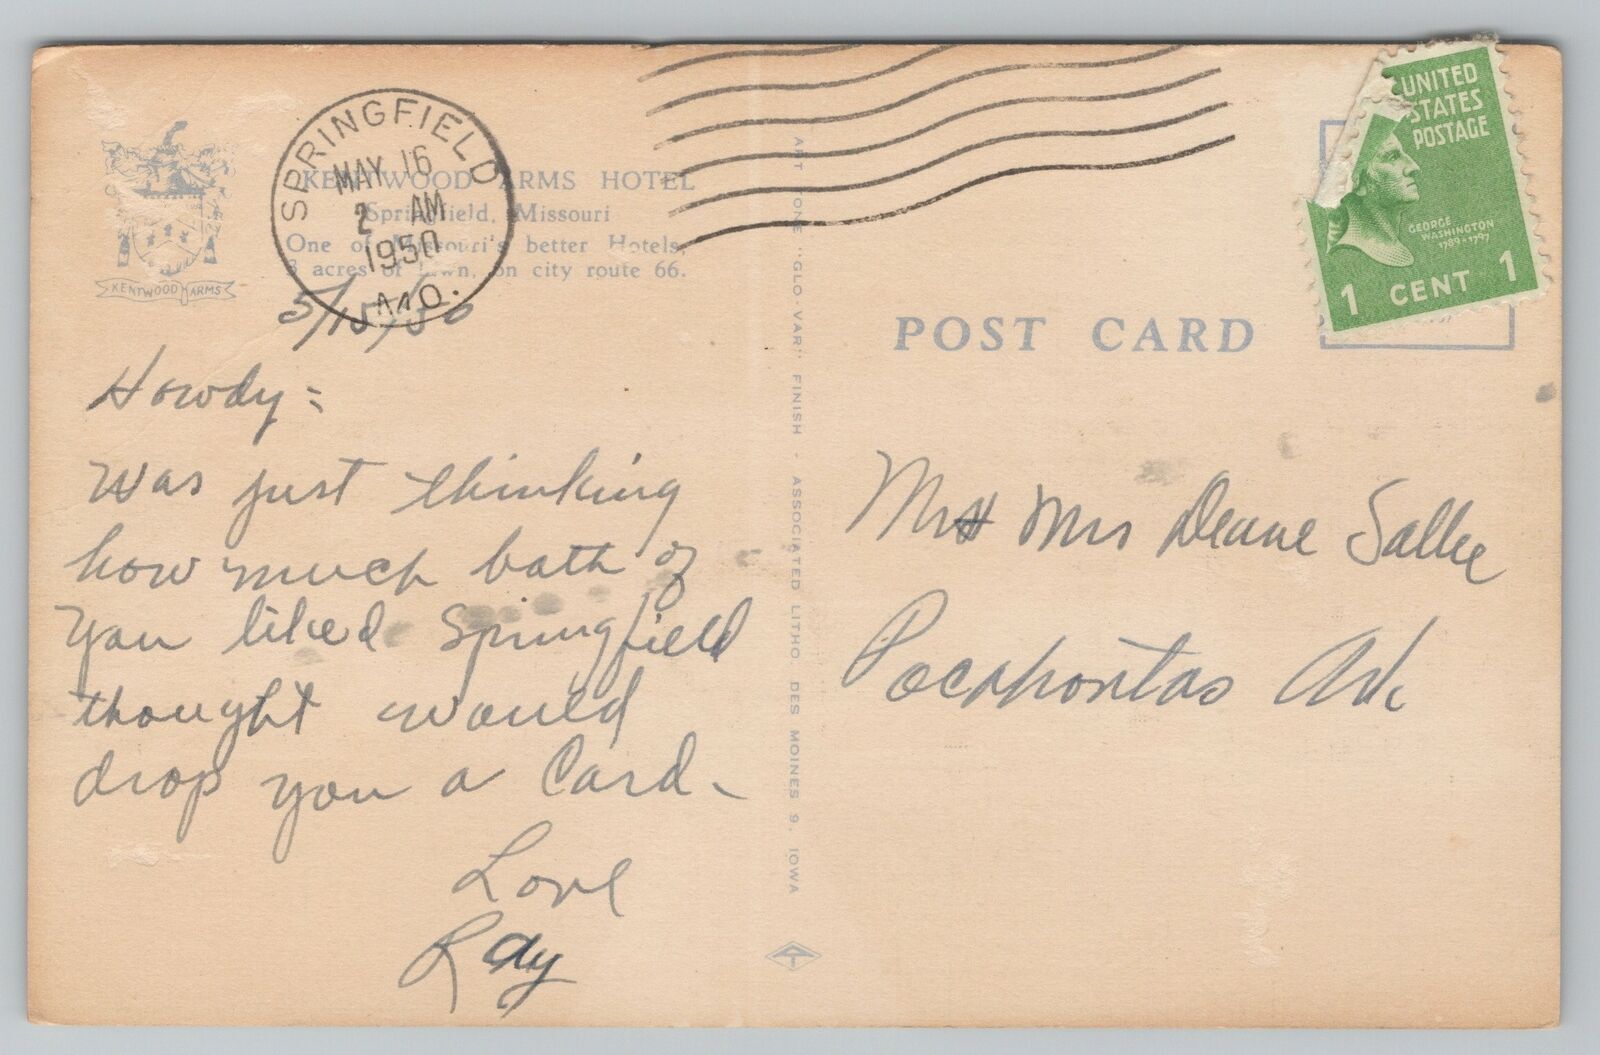 KENTWOOD ARMS HOTEL
Springfield, Missouri
One of Missouri's better Hotels,
3 acres of lawn, on city route 66.
KENTWOOD ARMS
SPRINGFIELD
MAY 16
2 AM
1950
MO.
5/15/50
Howdy =
Was just thinking
how much both of
you liked Springfield
thought would
drop you a Card -
Love
Ray
ART TONE "GLO-VAR" FINISH - ASSOCIATED LITHO DES MOINES 9, IOWA
POST CARD
UNITED
STATES
POSTAGE
GEORGE
WASHINGTON
1789-1797
1 CENT 1
Mr & Mrs Deane Sallee
Pocahontas Ark